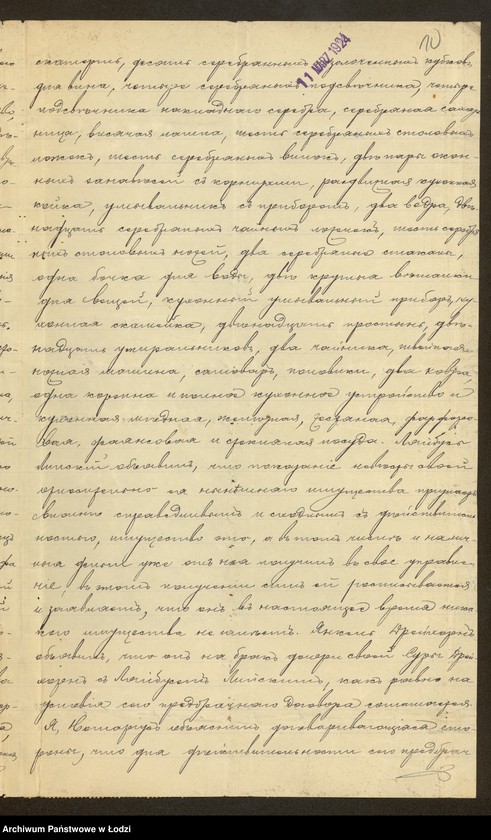 10
11 MRZ 1924
скатерть, десять серебряныхъ золоченныхъ кубковъ
для вина, четыре серебряныхъ подсвѣчника, четыре
подсвѣчника накладнаго серебра, серебряная сахар
ница, висячая лампа, шесть серебряныхъ столовыхъ
ложекъ, шесть серебряныхъ вилокъ, двѣ пары окон-
ныхъ занавѣсей съ корнизами, раздвижная кухонная
койка, умывальникъ съ приборомъ, два ведра, две-
надцать серебряныхъ чайныхъ ложекъ, шесть серебря
ныхъ столовыхъ ножей, два серебряно стакана,
одна бочка для воды, двѣ круглыя вѣшалки
для вещей, кухонный умывальный приборъ, ку-
хонная скамейка, двенадцать простынь, две-
надцать утиральниковъ, два чайника, швейная
ножная машина, самоваръ, половики, два ковра,
одна корзина и полное кухонное устройство и
кухонная мѣдная, желѣзная, фарфоро-
вая, фаянсовая и стеклянная посуда. Лейбусь
Липскій объявилъ, что показаніе невѣсты своей
относительно ея нынѣшняго имущества признаетъ
вполнѣ справедливымъ и сходнымъ съ дѣйствитель-
ностью, имущество это, а въ томъ числѣ и налич-
ныя деньги уже отъ нея получилъ въ свое управле-
ніе, въ этомъ полученіи симъ ей росписывается
и заявляетъ, что онъ въ настоящее время ника-
кого имущества не имѣетъ. Янкель
объявилъ, что онъ на бракъ дочери своей Суры
съ Лейбусемъ Липскимъ, какъ равно на
условія сего предбрачнаго договора соглашается.
Я, Нотаріусъ объяснилъ договаривающимся сто-
роны, что для дѣйствительности сего предбрач